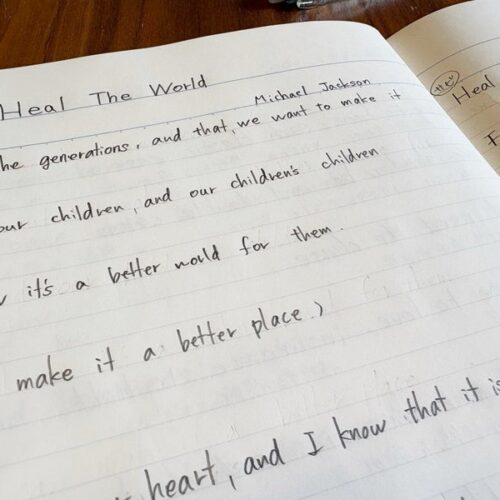 Heal The World
Michael Jackson
he generations, and that, we want to make it
our children, and our children's children
it's a better world for them.
make it a better place.)
heart, and I know that it is
"Hey"
Heal
F